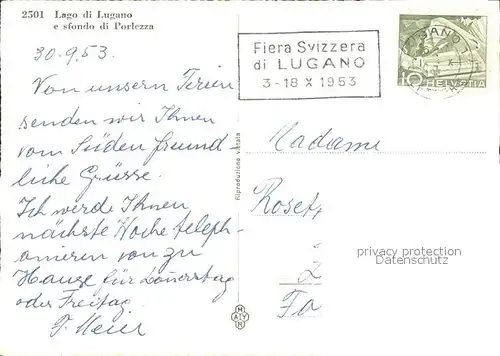 2501 Lago di Lugano
e sfondo di Porlezza
30.9.53.
Von unsern Ferien
senden wir Ihnen
vom Süden freund-
liche Grüsse.
Ich werde Ihnen
nächste Woche teleph-
onieren von zu
Hause für Donerstag
oder Freitag.
F. Meier
Fiera Svizzera
di LUGANO
3-18 X 1953
LUGANO 1
10 HELVETIA
Riproduzione vietata
Madame
Roset
privacy protection
Datenschutz
Fa
MATYR